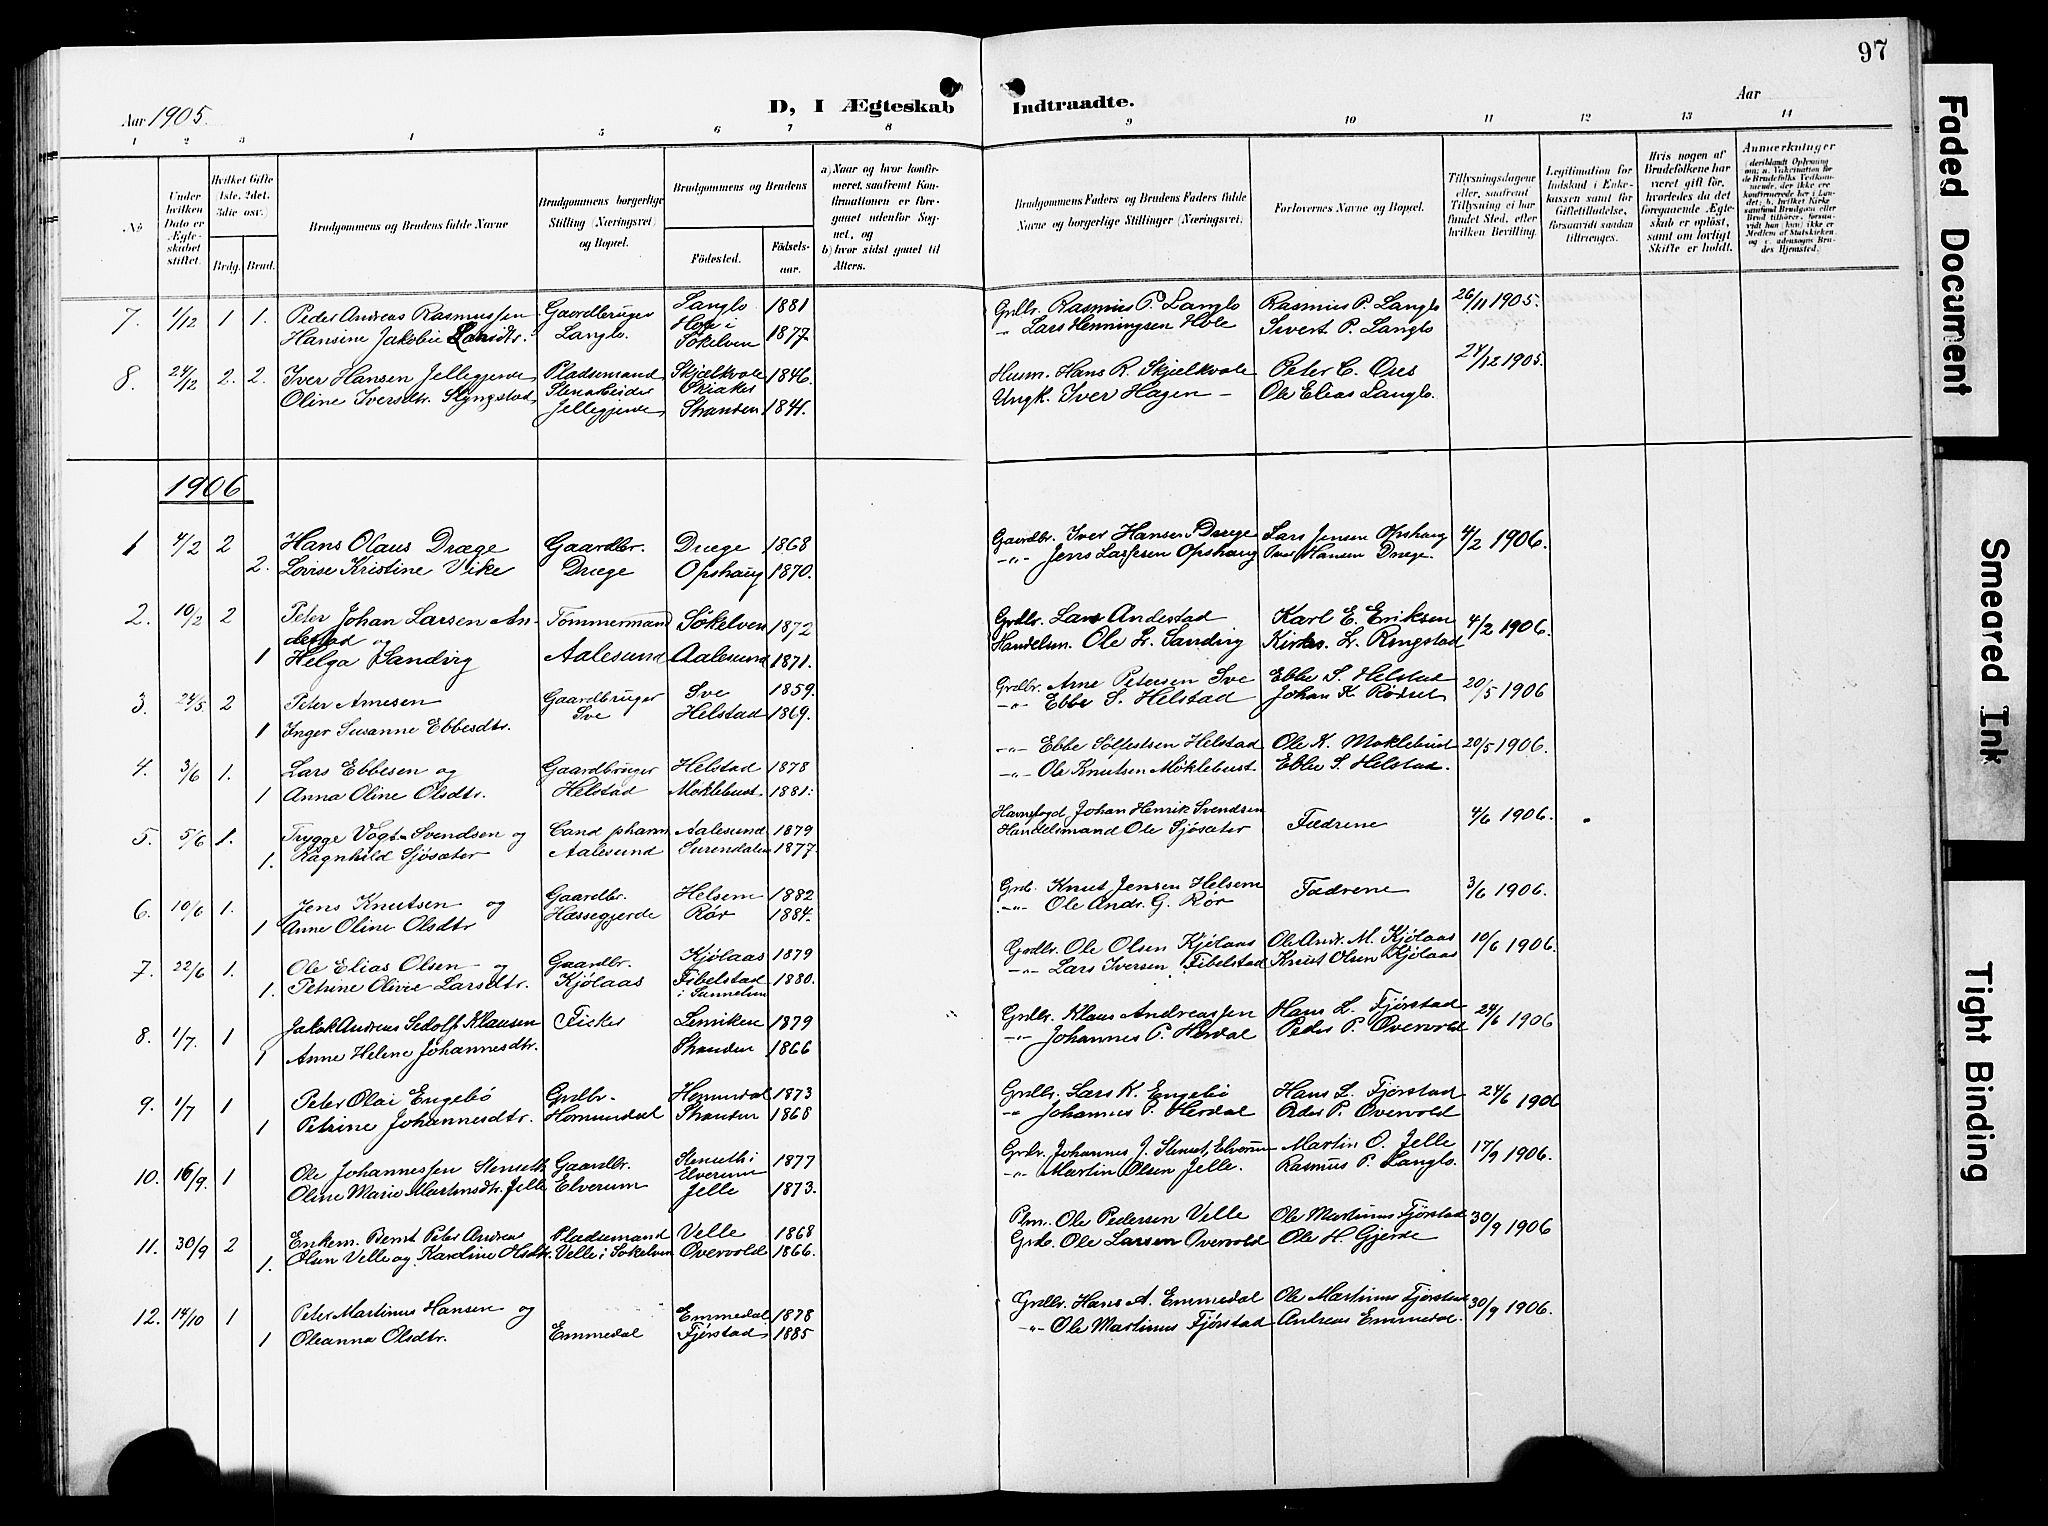 97
Aar 1905.
D, I Ægteskab Indtraadte.
Aar
1 2 3 4 5 6 7 8 9 10 11 12 13 14
No
Under hvilken Dato er Ægteskabet stiftet.
Hvilket Gifte 1ste, 2det, 3die osv.)
Brdg. Brud.
Brudgommens og Brudens fulde Navne
Brudgommens borgerlige Stilling (Næringsvei) og Bopæl.
Brudgommens og Brudens
Födested.
Födsels-aar.
a) Naar og hvor konfirmeret, saafremt Konfirmationen er foregaaet udenfor Sognet, og
b) hvor sidst gaaet til Alters.
Brudgommens Faders og Brudens Faders fulde Navne og borgerlige Stillinger (Næringsvei)
Forlovernes Navne og Bopæl.
Tillysningsdagene eller, saafremt Tillysning ei har fundet Sted, efter hvilken Bevilling.
Legitimation for Indskud i Enkekassen samt for Giftetilladelse, forsaavidt saadan tiltrænges.
Hvis nogen af Brudefolkene har været gift før, hvorledes da det foregaaende Ægteskab er opløst, samt om lovligt Skifte er holdt.
Anmærkninger
7. 1/12 1 1. Peder Andreas Rasmussen Gaardbruger Langlo 1881 Grdbr. Rasmus P. Langlo Rasmus P. Langlo 26/11 1905.
Hansine Jakobie Larsdtr. Langlo. Hole i Sökelven 1877. " Lars Henningsen Hole Sivert P. Langlo
8. 24/12 2. 2. Iver Hansen Jellegjerde Pladsemand Skjelkvole 1846. Husm. Hans R. Skjelkvole Peter C. Oies 24/12 1905.
Oline Iversdtr. Slyngstad Stenarbeider Jellegjerde Stranden 1841. Ungk. Iver Hagen - Ole Elias Langlo.
1906
1 4/2 2 Hans Olaus Drœge Gaardbr. Drœge 1868 Gaardbr. Iver Hansen Drœge Lars Jensen Opshaug 4/2 1906.
2. Lovise Kristine Vike Drœge Opshaug 1870. -"- Jens Larssen Opshaug Iver Hansen Drœge.
2. 10/2 2 Peter Johan Larsen An- Tömmermand Sökelven 1872 Grdbr. Lars Andestad Karl E. Eriksen 4/2 1906.
destad og
1 Helga Sandvig Aalesund Aalesund 1871. Handelsm. Ole Lr. Sandvig Kirkes. L. Ringstad
3. 24/5 2 Peter Arnesen Gaardbruger Sve 1859. Grdbr. Arne Petersen Sve Ebbe S. Helstad 20/5 1906
1 Inger Susanne Ebbesdtr. Sve Helstad 1869. -"- Ebbe S. Helstad Johan K. Rödset
4. 3/6 1. Lars Ebbesen og Gaardbruger Helstad 1878 -"- Ebbe Sölfestsen Helstad Ole K. Moklebust 20/5 1906.
1 Anna Oline Olsdtr. Helstad Moklebust 1881. -"- Ole Knutsen Möklebust Ebbe S. Helstad.
5. 5/6 1. Trygge Vogt Svendsen og Cand pharm Aalesund 1879 Havnefogd Johan Henrik Svendsen Fædrene 4/6 1906.
1. Ragnhild Sjösœter Aalesund Surendalen 1877. Handelsmand Ole Sjösœter
6. 10/6 1. Jens Knutsen og Gaardbr. Helsem 1882 Grdb. Knut Jensen Helsem Fædrene 3/6 1906.
1 Anne Oline Olsdtr Hassegjerde Rör 1884. -"- Ole Andr. G. Rör
7. 22/6 1. Ole Elias Olsen - og Gaardbr. Kjölaas 1879 Grdbr. Ole Olsen Kjölaas Ole Andr. M. Kjölaas 10/6 1906.
1. Petrine Olivie Larsdtr. Kjölaas Fibelstad i Sunnelven 1880. -"- Lars Iversen Fibelstad Knut Olsen Kjölaas
8. 1/7. 1 Jakob Andreas Sedolf Klausen Fisker Lemiken 1879 Grdbr. Klaus Andreassen Hans L. Fjörstad 24/6 1906
1 Anne Helene Johannesdtr. Stranden 1866 -"- Johannes P. Herdal Peder P. Overvold
9. 1/7 1 Peter Olai Engebö Grdbr. Homindal 1873 Grdbr. Lars K. Engebö Hans L. Fjörstad 24/6 1906
1 Petrine Johannesdtr. Homundal Stranden 1868 " Johannes P. Herdal Peder P. Overvold
10. 16/9. 1 Ole Johannessen Stenseth Gaardbr. Stenseth i Elverum 1877 Grdr. Johannes J. Stenset, Elverum Martin O. Jelle 17/9 1906.
Oline Marie Martinsdtr. Jelle Elverum Jelle 1873. -"- Martin Olsen Jelle. Rasmus P. Langlo.
11. 30/9 2 Enkem. Bernt Peter Andreas Pladsemand Velle 1868 Plm. Ole Pedersen Velle Ole Martinus Fjörstad 30/9 1906
1. Olsen Velle og Karoline Olsdtr. Velle i Sökelven Overvold 1866. Grdb. Ole Larsen Overvold Ole H. Gjerde
12. 14/10 1 Peter Martinus Hansen og Emmedal 1878 Grdbr. Hans A. Emmedal Ole Martinus Fjörstad 30/9 1906.
1 Oleanna Olsdtr. Emmedal Fjörstad 1885 -"- Ole Martinus Fjörstad Andreas Emmedal.
Faded Document
Smeared Ink
Tight Binding